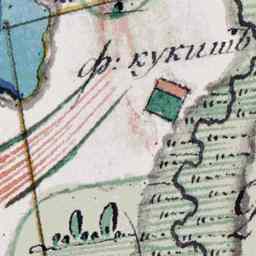 ф: кукишъ